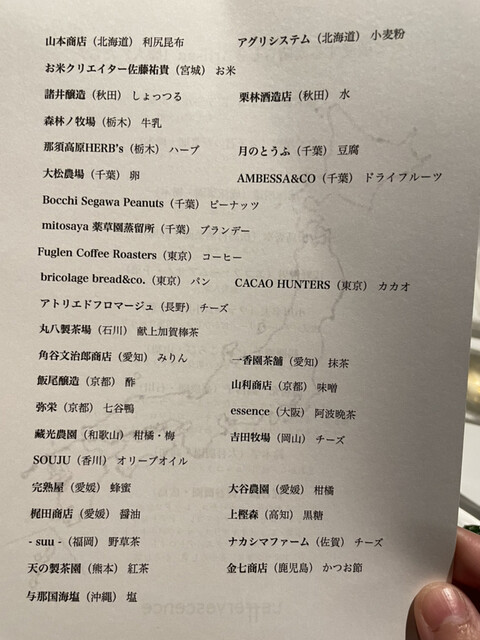 山本商店（北海道） 利尻昆布　アグリシステム（北海道） 小麦粉
お米クリエイター佐藤祐貴（宮城） お米
諸井醸造（秋田） しょっつる　栗林酒造店（秋田） 水
森林ノ牧場（栃木） 牛乳
那須高原HERB's（栃木） ハーブ　月のとうふ（千葉） 豆腐
大松農場（千葉） 卵　AMBESSA&CO（千葉） ドライフルーツ
Bocchi Segawa Peanuts（千葉） ピーナッツ
mitosaya 薬草園蒸留所（千葉） ブランデー
Fuglen Coffee Roasters（東京） コーヒー
bricolage bread&co.（東京） パン　CACAO HUNTERS（東京） カカオ
アトリエドフロマージュ（長野） チーズ
丸八製茶場（石川） 献上加賀棒茶
角谷文治郎商店（愛知） みりん　一香園茶舗（愛知） 抹茶
飯尾醸造（京都） 酢　山利商店（京都） 味噌
弥栄（京都） 七谷鴨　essence（大阪） 阿波晩茶
藏光農園（和歌山） 柑橘・梅　吉田牧場（岡山） チーズ
SOUJU（香川） オリーブオイル
完熟屋（愛媛） 蜂蜜　大谷農園（愛媛） 柑橘
梶田商店（愛媛） 醤油　上樫森（高知） 黒糖
- suu -（福岡） 野草茶　ナカシマファーム（佐賀） チーズ
天の製茶園（熊本） 紅茶　金七商店（鹿児島） かつお節
与那国海塩（沖縄） 塩